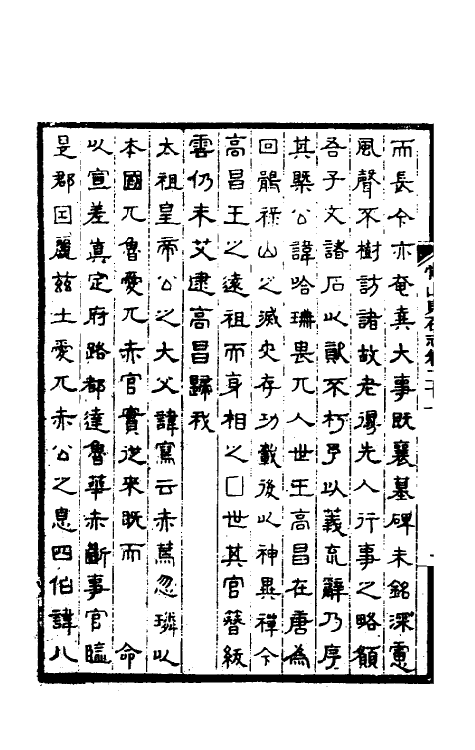 而長今亦奄真大事既襄墓碑未銘深慮
風聲不樹訪諸故老得先人行事之略願
吾子文諸石以猷不朽予以義克辭乃序
其槩公諱哈璛畏兀人世王高昌在唐為
回鶻祿山之滅史存功載後以神異禪今
高昌王之遠祖而身相之□世其官簪紱
雲仍未艾逮高昌歸我
太祖皇帝公之大父諱寫云赤篤忽璘以
本國兀魯愛兀赤官實從來既而　命
以宣差真定府路都達魯華赤斷事官臨
是郡因麗茲土愛兀赤公之息四伯諱八
常山貞石志卷二十一